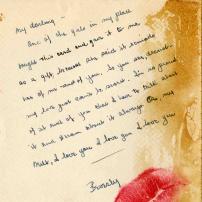 My darling -
One of the gals in my place
bought this card and gave it to me
as a gift because she said it reminded
her of me and you. So you see, dearest,
my love just can't be secret. I'm so proud
of it and of you that I have to talk about
it and dream about it always. Oh, my
Milt, I love you I love you I love you
Beverly